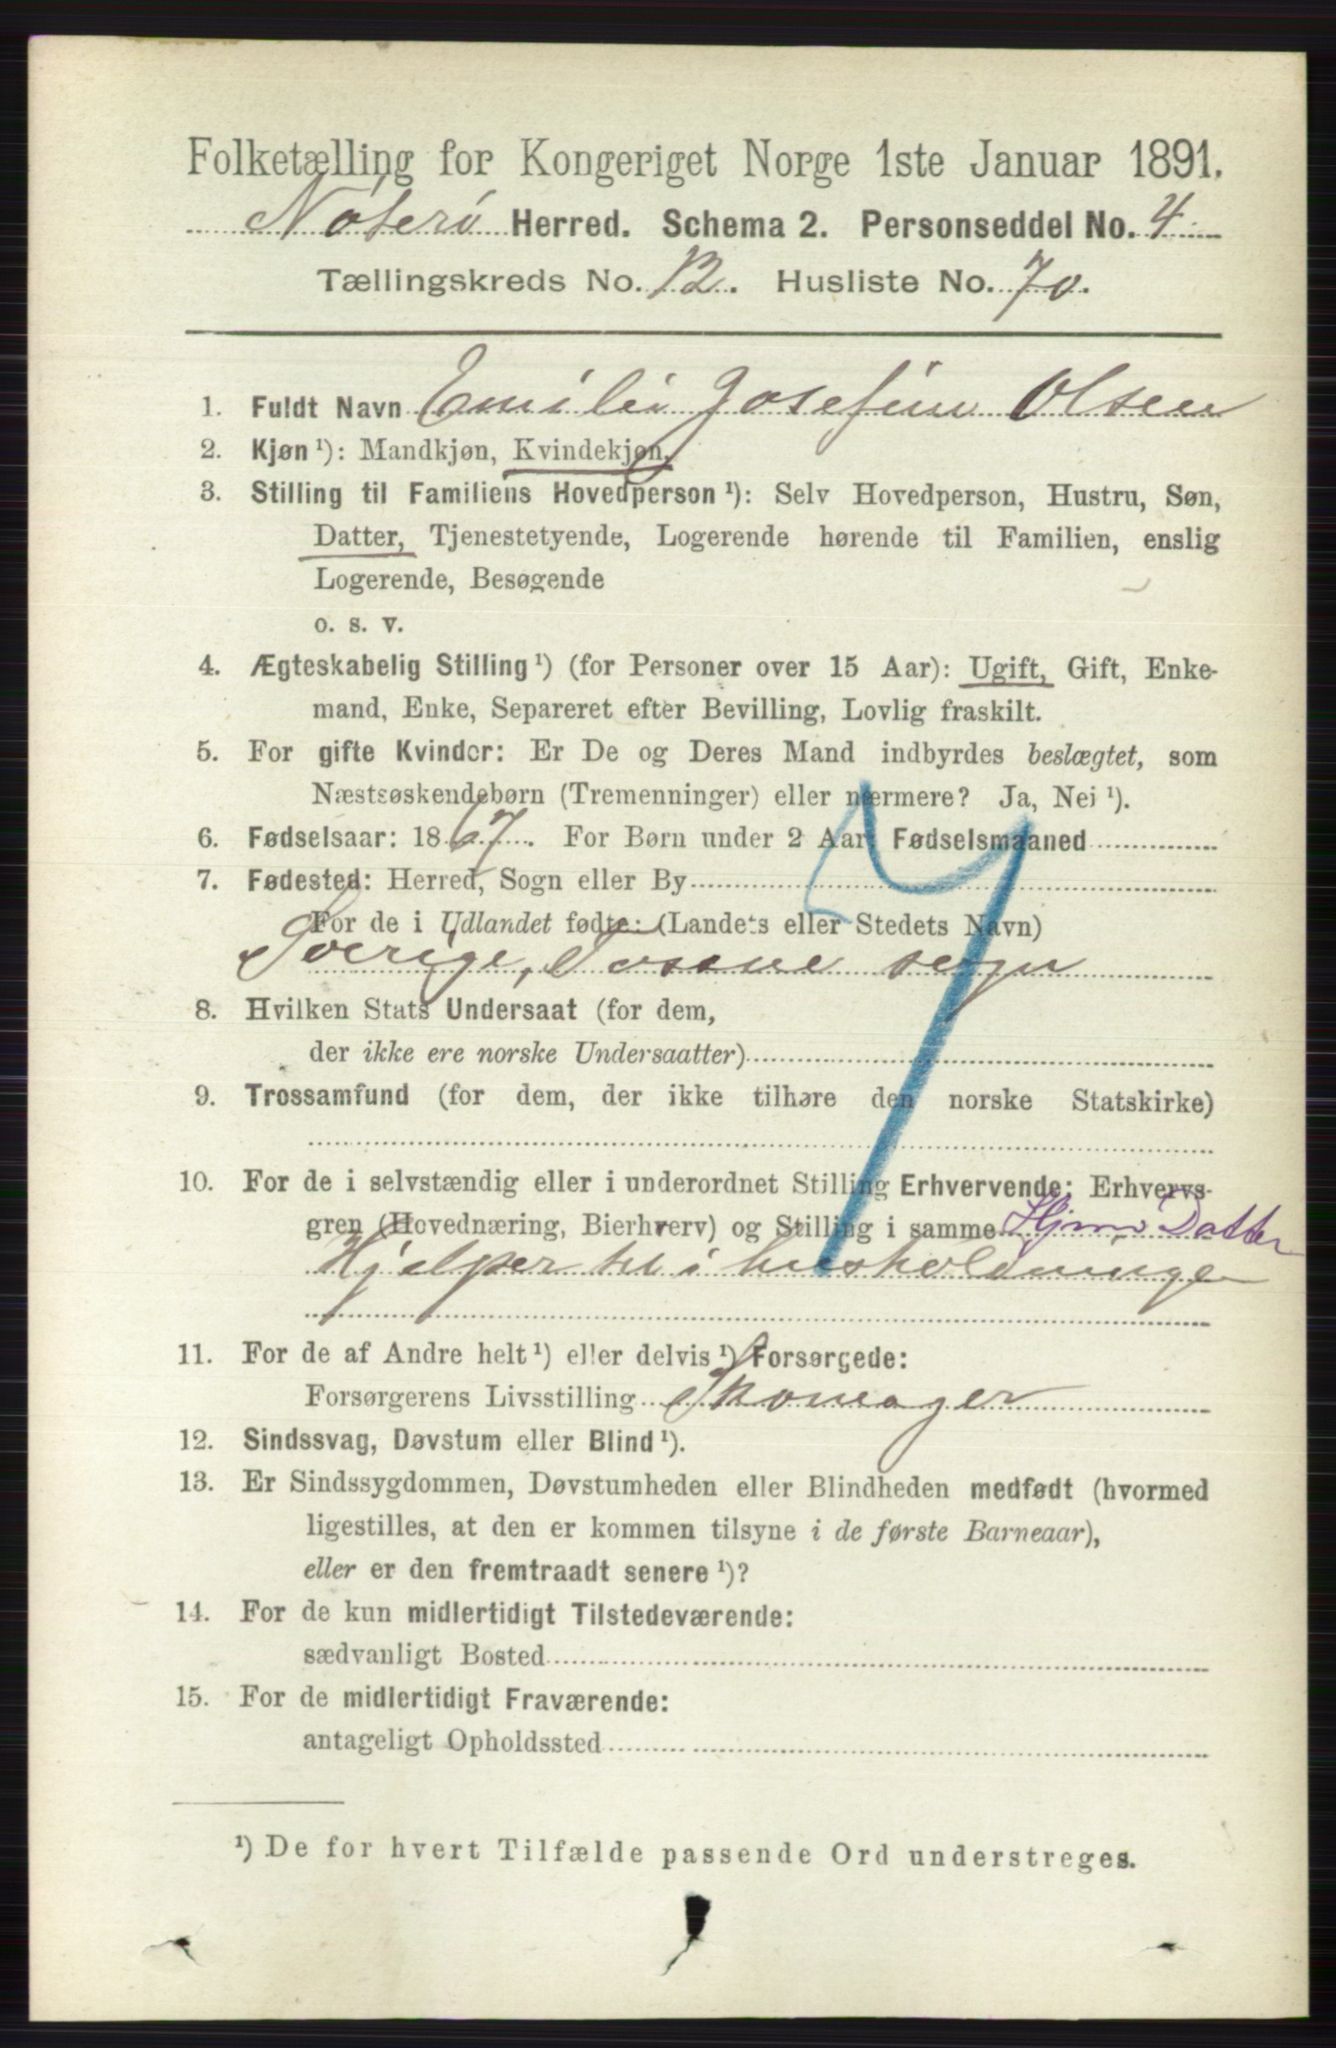 Folketælling for Kongeriget Norge 1ste Januar 1891.
Nøterø Herred. Schema 2. Personseddel No. 4
Tællingskreds No. 12. Husliste No. 70.
1. Fuldt Navn Emilie Josefine Olsen
2. Kjøn ¹): Mandkjøn, Kvindekjøn.
3. Stilling til Familiens Hovedperson ¹): Selv Hovedperson, Hustru, Søn,
Datter, Tjenestetyende, Logerende hørende til Familien, enslig
Logerende, Besøgende
o. s. v.
4. Ægteskabelig Stilling ¹) (for Personer over 15 Aar): Ugift, Gift, Enke-
mand, Enke, Separeret efter Bevilling, Lovlig fraskilt.
5. For gifte Kvinder: Er De og Deres Mand indbyrdes beslægtet, som
Næstsøskendebørn (Tremenninger) eller nærmere? Ja, Nei ¹).
6. Fødselsaar: 1867. For Børn under 2 Aar: Fødselsmaaned
7. Fødested: Herred, Sogn eller By
For de i Udlandet fødte: (Landets eller Stedets Navn)
Sverige, Tosene sogn
8. Hvilken Stats Undersaat (for dem,
der ikke ere norske Undersaatter)
9. Trossamfund (for dem, der ikke tilhøre den norske Statskirke)
10. For de i selvstændig eller i underordnet Stilling Erhvervende: Erhvervs-
gren (Hovednæring, Bierhverv) og Stilling i samme Hjmv Datter
Hjelper til i husholdningen
11. For de af Andre helt ¹) eller delvis ¹) Forsørgede:
Forsørgerens Livsstilling Skomager
12. Sindssvag, Døvstum eller Blind ¹).
13. Er Sindssygdommen, Døvstumheden eller Blindheden medfødt (hvormed
ligestilles, at den er kommen tilsyne i de første Barneaar),
eller er den fremtraadt senere ¹)?
14. For de kun midlertidigt Tilstedeværende:
sædvanligt Bosted
15. For de midlertidigt Fraværende:
antageligt Opholdssted
¹) De for hvert Tilfælde passende Ord understreges.